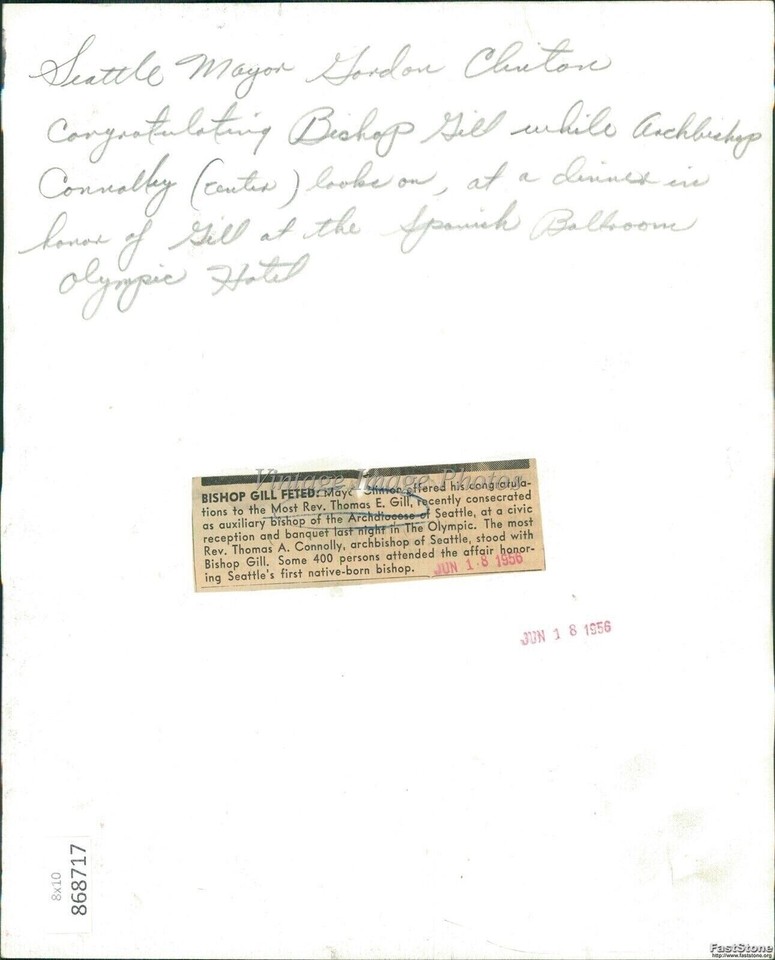 Seattle Mayor Gordon Clinton
congratulating Bishop Gill while Archbishop
Connolly (center) looks on, at a dinner in
honor of Gill at the Spanish Ballroom
Olympic Hotel
Vintage Image Photos
BISHOP GILL FETED: Mayo Clinton offered his congratula-
tions to the Most Rev. Thomas E. Gill, recently consecrated
as auxiliary bishop of the Archdiocese of Seattle, at a civic
reception and banquet last night in The Olympic. The most
Rev. Thomas A. Connolly, archbishop of Seattle, stood with
Bishop Gill. Some 400 persons attended the affair honor-
ing Seattle's first native-born bishop.
JUN 18 1956
JUN 18 1956
8x10
868717
FastStone
http://www.faststone.org